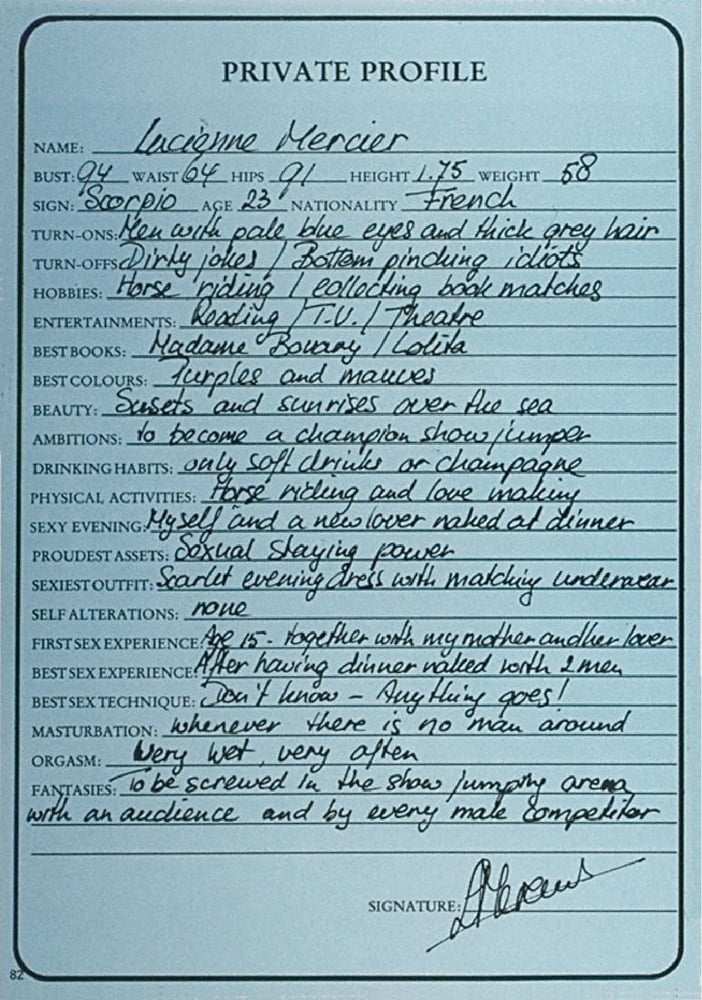 PRIVATE PROFILE
NAME: Lucienne Mercier
BUST: 94 WAIST 64 HIPS 91 HEIGHT 1.75 WEIGHT 58
SIGN: Scorpio AGE 23 NATIONALITY French
TURN-ONS: Men with pale blue eyes and thick grey hair
TURN-OFFS: Dirty jokes / Bottom pinching idiots
HOBBIES: Horse riding / collecting book matches
ENTERTAINMENTS: Reading / T.V. / Theatre
BEST BOOKS: Madame Bovary / Lolita
BEST COLOURS: Purples and mauves
BEAUTY: Susets and sunrises over the sea
AMBITIONS: to become a champion show jumper
DRINKING HABITS: only soft drinks or champagne
PHYSICAL ACTIVITIES: Horse riding and love making
SEXY EVENING: Myself and a new lover naked at dinner
PROUDEST ASSETS: Sexual staying power
SEXIEST OUTFIT: Scarlet evening dress with matching underwear
SELF ALTERATIONS: none
BEST SEX EXPERIENCE: After having dinner naked with 2 men
BEST SEX TECHNIQUE: Don't know - Anything goes!
MASTURBATION: whenever there is no man around
ORGASM: Very wet, very often
FANTASIES: To be screwed in the show jumping arena
with an audience and by every male competitor
SIGNATURE:
82